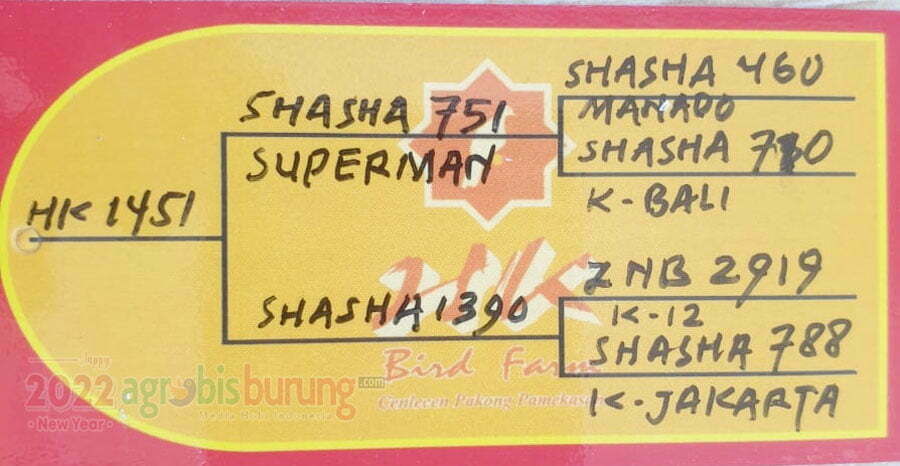 SHASHA 460
SHASHA 751
MANADO
SUPERMAN
SHASHA 710
K-BALI
HK 1451
ZNB 2919
SHASHA 1390
K-12
SHASHA 788
K-JAKARTA
HK
Bird Farm
Cenlecen Pakong Pamekasan
happy
2022
New Year
agrobisburung.com
Media Hobi Indonesia